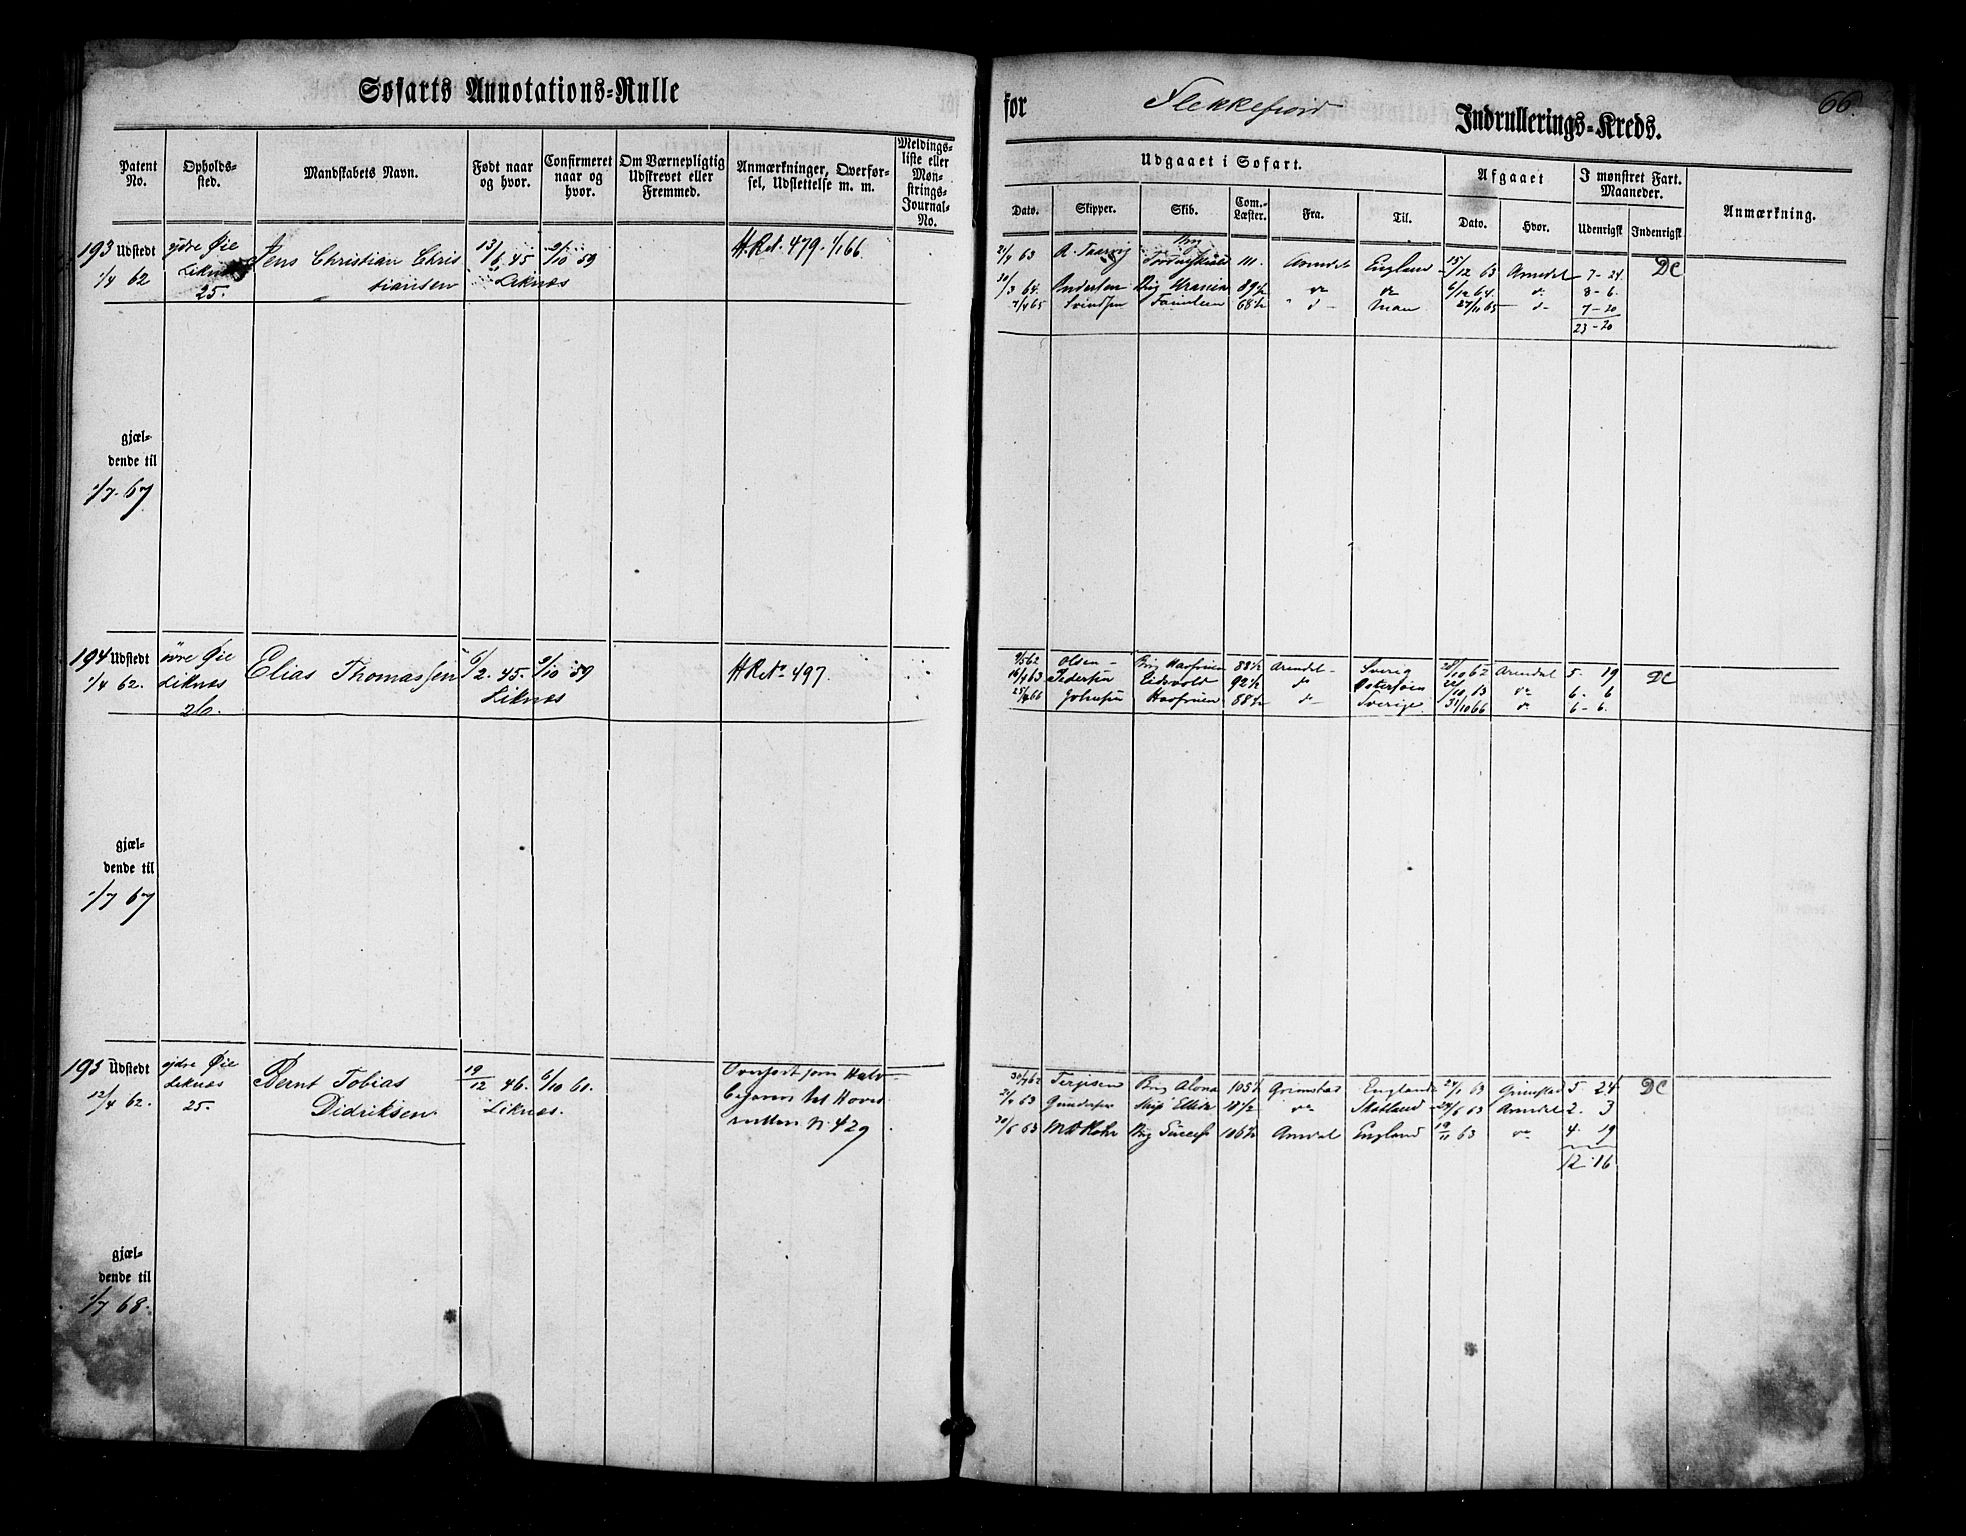 Søfarts Annotations-Rulle
for Flekkefjord Indrullerings-Kreds. 66.
Patent No. Opholdssted. Mandskabets Navn. Født naar og hvor. Confirmeret naar og hvor. Om Værnepligtig Udskrevet eller Fremmed. Anmærkninger, Overførsel, Udslettelse m. m. Meldingsliste eller Mønstrings-Journal-No.
Udgaaet i Søfart. Afgaaet I mønstret Fart. Maaneder. Anmærkning.
Dato. Skipper. Skib. Com.-Læster. Fra. Til. Dato. Hvor. Udenrigsk Indenrigsk
193 Udstedt ydre Øie Jens Christian Chris 13/6 45 9/10 59 HRet. 479. 1/1 66.
1/4 62 Liknæs tiansen Liknæs
25.
63 111. Arendal England 15/12 63 Arendal 7-24 DC
30/3 64. Andersen Brig 89½ do do 6/12 64. do 8-6.
7/4 65 Svendsen Familien 68½ " d- 27/11 65 d- 7-20
23-20
gjæl-
dende til
1/7. 67
194 Udstedt övre Øie Elias Thomassen 6/2. 45. 9/10 59 HRet No 497.
1/4 62. Liknæs Liknæs
26.
9/5 62 Olsen Brig Havfruen 88½ Arendal Sverig 28/10 62 Arendal 5. 19 DC
16/4 63 Pedersen Eidsvold 92½ do Østersøen /10 63 do 6. 6
25/4 66 Johnsen Havfruen 88½ d- Sverige 31/10 66 do 6-6.
gjæl-
dende til
1/7 67
193 Udstedt ydre Øie Bernt Tobias 19/12 46. 6/10 61. Overført som Halv
12/4 62. Liknæs Didriksen Liknæs. befaren til Hoved
25. rullen N. 429
30/7 62 Terjesen Brig Alona 105½ Grimstad England 24/1 63 Grimstad 5. 24 DC
21/4 63 Gundersen do Skotland 24/6 63 Arendal 2. 3
30/6 63 Brig 106½ Arendal England 19/11 63 do 4. 19
12-16
gjæl-
dende til
1/7 68.